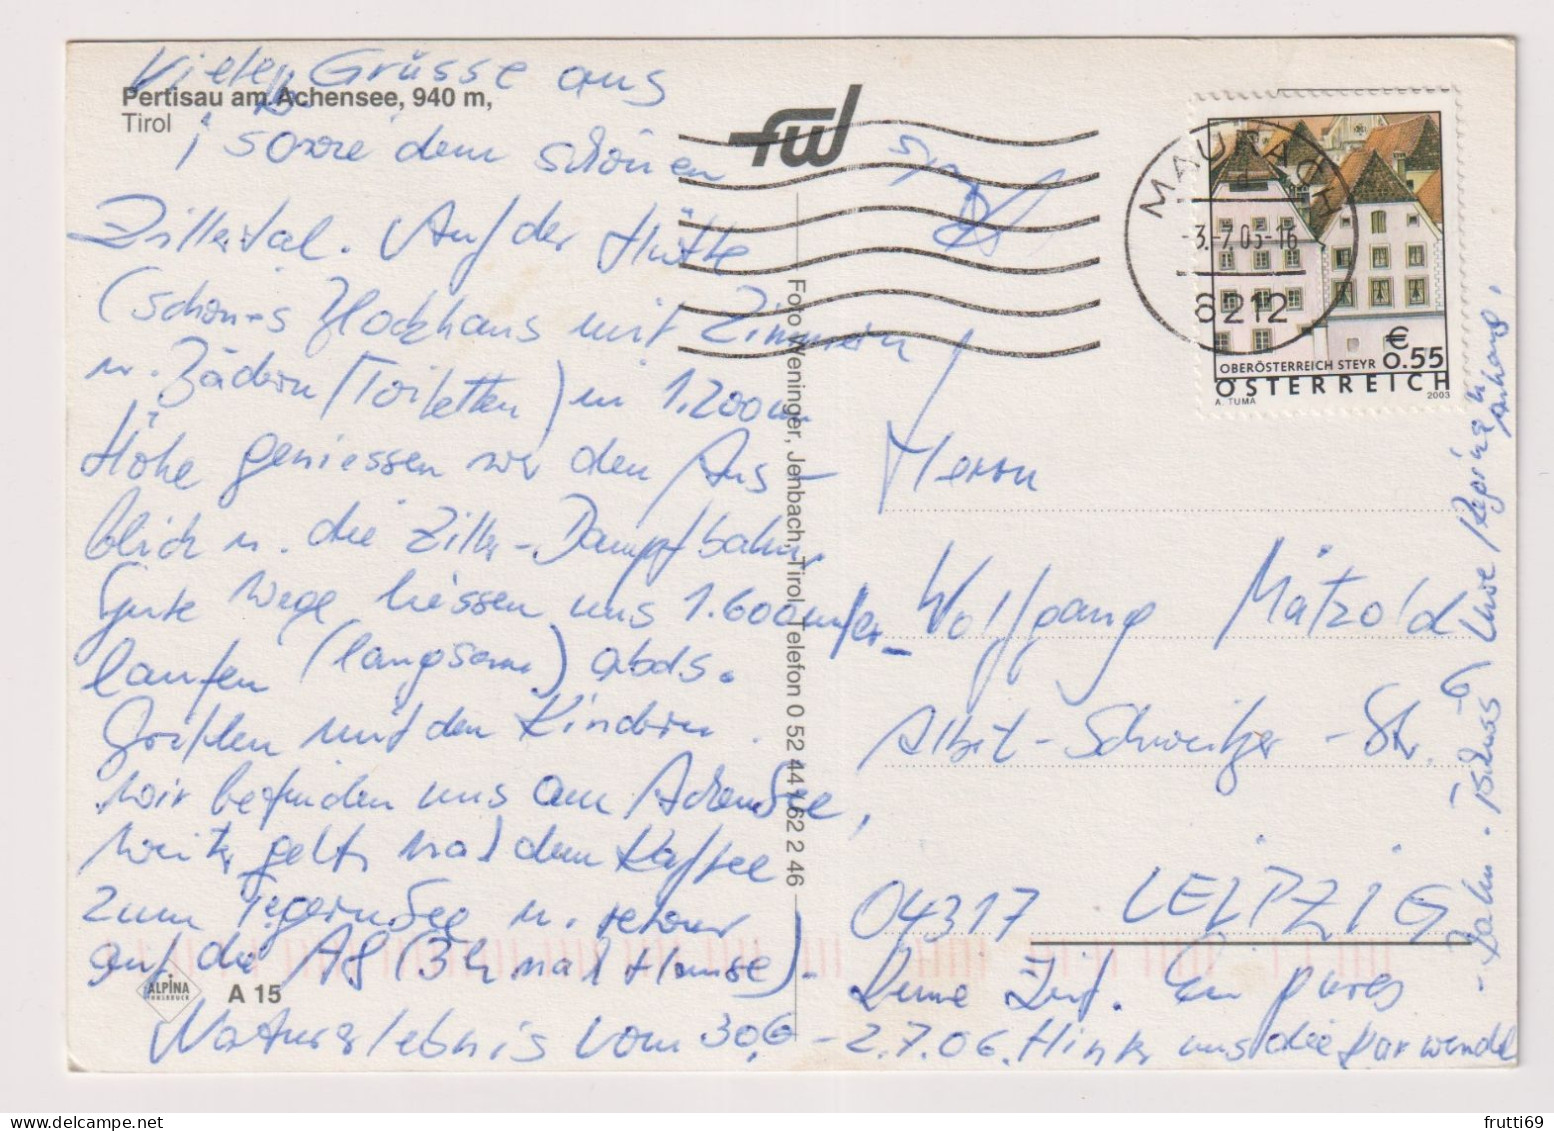 Viele Grüsse aus
Pertisau am Achensee, 940 m,
Tirol
dem schönen
Zillertal. Auf der Hütte
(schönes Holzhaus mit Zimmern
u. Bädern/Toiletten) in 1.200 m
Höhe geniessen wir den Aus-
blick u. die Ziller-Dampfbahn.
Gute Wege liessen uns 1.600 m
laufen (langsam) abds.
Grillen mit den Kindern.
Wir befinden uns am Achensee,
weiter geht's nach dem Kaffee
zum Tegernsee u. retour
auf die A8 (3 h nach Hause)
Naturerlebnis vom 30.6. - 2.7.06. Hinter uns die Karwendel
ALPINA
INNSBRUCK
A 15
fwl
Foto Weninger, Jenbach, Tirol, Telefon 0 52 44 / 62 2 46
MAURACH
-3.-7.06-16
6212
€
0.55
OBERÖSTERREICH STEYR
ÖSTERREICH
A. TUMA
2003
Herrn
Wolfgang Mätzold
Schweitzer-Str. 6
04317 LEIPZIG
Zeit. Ein pures
Uwe Regina u.
frutti69